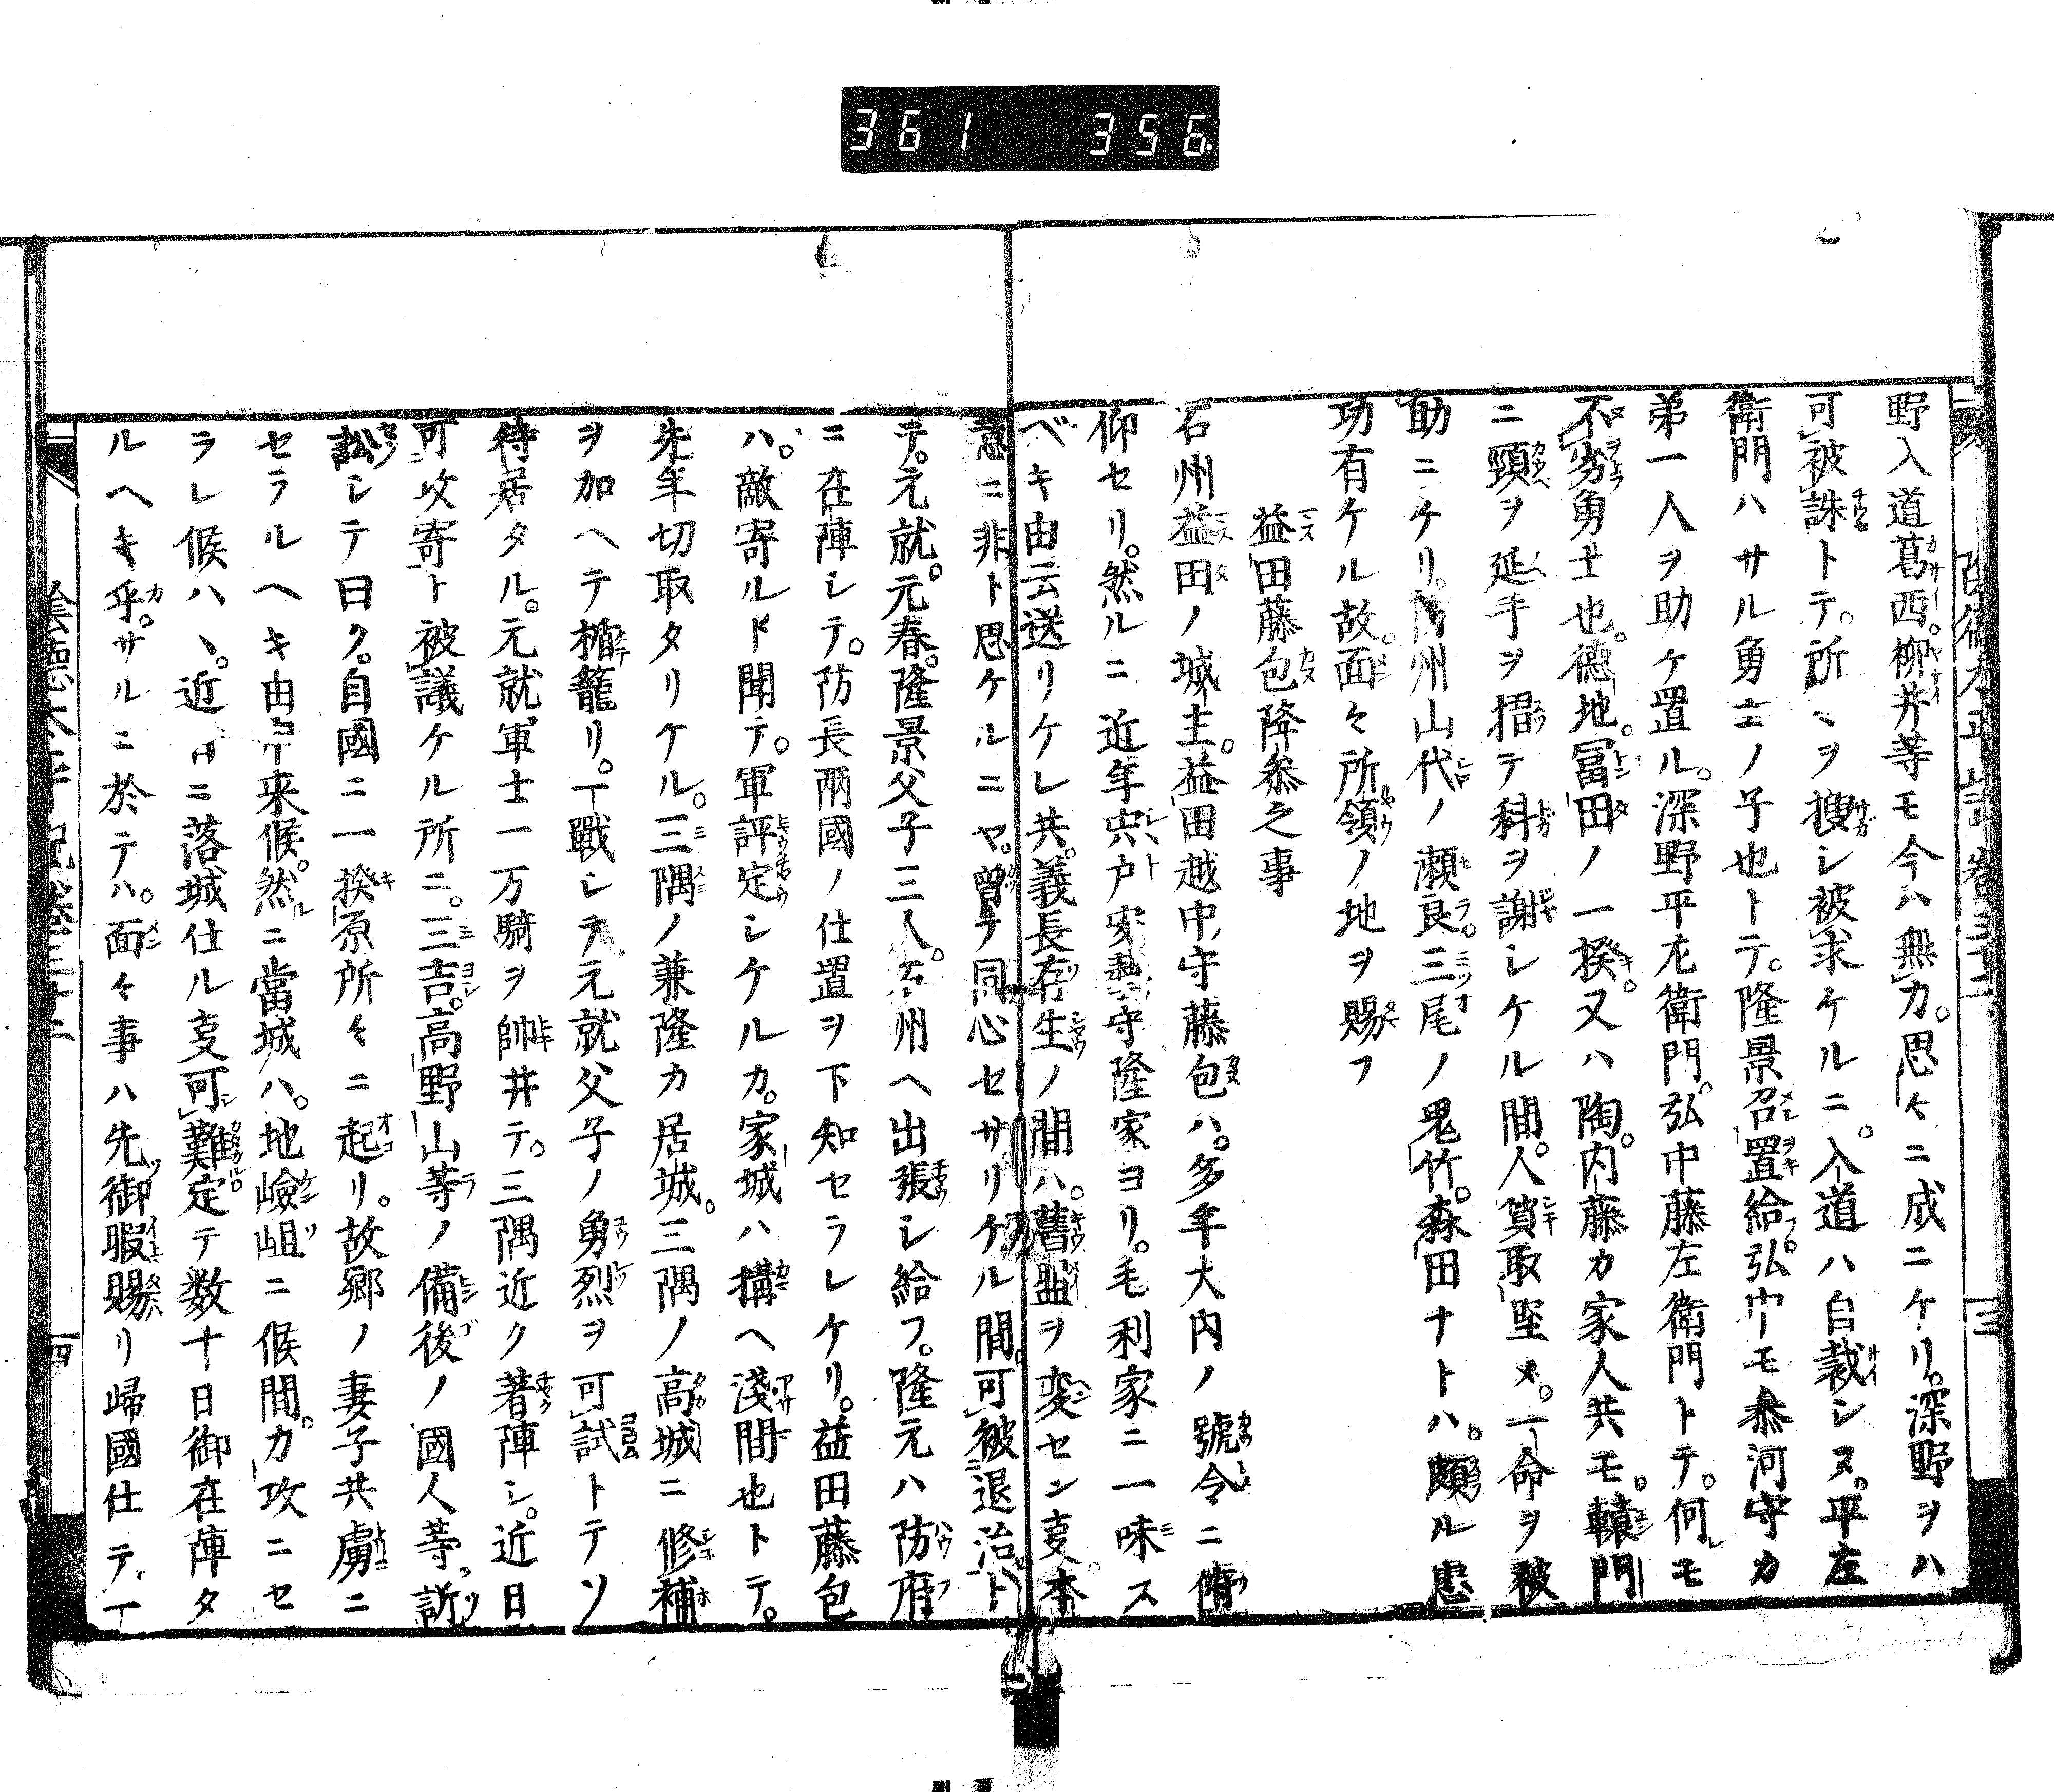 361 356
野入道葛西。柳井等モ今ハ無力。思々ニ成ニケリ。深野ヲハ
可被誅トテ。所々ヲ搜シ被求ケルニ。入道ハ自裁シヌ。平左
衛門ハサル勇士ノ子也トテ。隆景召置給フ。弘中モ参河守カ
弟一人ヲ助ケ置ル。深野平左衛門。弘中藤左衛門トテ。何レモ
不劣勇士也。德地。冨田ノ一揆。又ハ陶。内藤カ家人共モ。轅門
ニ頸ヲ延手ヲ摺テ科ヲ謝シケル間。人質取堅メ。一命ヲ被
助ニケリ。防州山代ノ瀬良。三尾ノ鬼竹。森田ナトハ。頗ル忠
功有ケル故。面々所領ノ地ヲ賜フ
益田藤包降參之事
石州益田ノ城主。益田越中守藤包ハ。多年大内ノ號令ニ脩
仰セリ。然ルニ近年宍戸安藝守隆家ヨリ。毛利家ニ一味ス
ベキ由云送リケレ共。義長存生ノ間ハ。舊盟ヲ変セン支。本
意ニ非ト思ケルニヤ。曾テ同心セサリケル間。可被退治ト
テ。元就。元春。隆景父子三人。石州ヘ出張シ給フ。隆元ハ防府
ニ在陣シテ。防長兩國ノ仕置ヲ下知セラレケリ。益田藤包
ハ。敵寄ルト聞テ。軍評定シケルカ。家城ハ構ヘ淺間也トテ。
先年切取タリケル。三隅ノ兼隆カ居城。三隅ノ高城ニ修補
ヲ加ヘテ楯籠リ。一戰シテ元就父子ノ勇烈ヲ可試トテソ
待居タル。元就軍士一万騎ヲ帥井テ。三隅近ク著陣シ。近日
可攻寄ト被議ケル所ニ。三吉。高野山等ノ備後ノ國人等。訴
訟シテ曰ク。自國ニ一揆原所々ニ起リ。故郷ノ妻子共虜ニ
セラルヘキ由申来候。然ルニ當城ハ。地嶮岨ニ候間。力攻ニセ
ラレ候ハヽ。近日ニ落城仕ル支可難定テ数十日御在陣タ
ルヘキ乎。サルニ於テハ。面々事ハ先御暇賜リ歸國仕テ。一
陰德太平記卷三十二
三
四